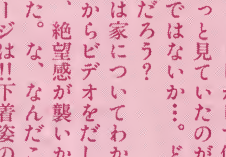 っと見ていたのが
ではないか…。ど
だろう？
は家についてわか
からビデオをだし
、絶望感が襲いか
た。な、なんだこ
ージは!!下着姿の